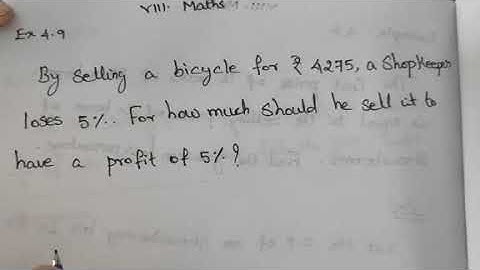 VIII. Maths
Ex 4.9
By selling a bicycle for ₹ 4275, a Shopkeeper
loses 5%. For how much should he sell it to
have a profit of 5%?